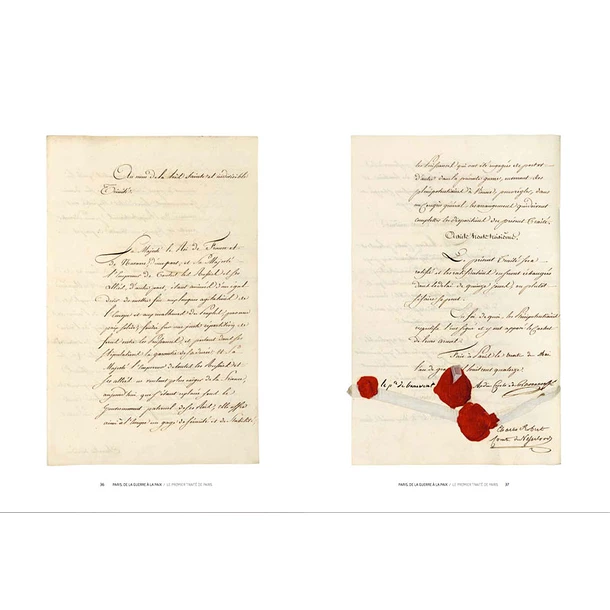 Au nom de la Très Sainte et indivisible
Trinité.
Sa Majesté le Roi de France et
de Navarre d'une part, et Sa Majesté
l'Empereur de toutes les Russies et ses
alliés, d'autre part, étant animés d'un égal
désir de mettre fin aux longues agitations de
l'Europe et aux malheurs des Peuples, par une
paix solide, fondée sur une juste répartition de
forces entre les Puissances, et portant dans ses
stipulations la garantie de sa durée; et Sa
Majesté l'Empereur de toutes les Russies et
ses alliés ne voulant plus exiger de la France,
aujourd'hui que, s'étant replacée sous le
Gouvernement paternel de ses Rois, elle offre
ainsi à l'Europe un gage de sécurité et de stabilité,
36 PARIS, DE LA GUERRE À LA PAIX / LE PREMIER TRAITÉ DE PARIS
les Puissances qui ont été engagées de part et
d'autre dans la présente guerre, enverront des
plénipotentiaires à Vienne, pour régler, dans
un Congrès général, les arrangements qui doivent
compléter les dispositions du présent Traité.
Article trente troisième.
Le présent Traité sera
ratifié et les ratifications en seront échangées
dans le délai de quinze jours, ou plutôt
si faire se peut.
En foi de quoi, les Plénipotentiaires
respectifs l'ont signé et y ont apposé le Cachet
de leurs armes.
Fait à Paris le trente de Mai
l'an de grâce mil huit cent quatorze.
le p.ce de benevent
Charles Robert
Comte de Nesselrode
PARIS, DE LA GUERRE À LA PAIX / LE PREMIER TRAITÉ DE PARIS 37